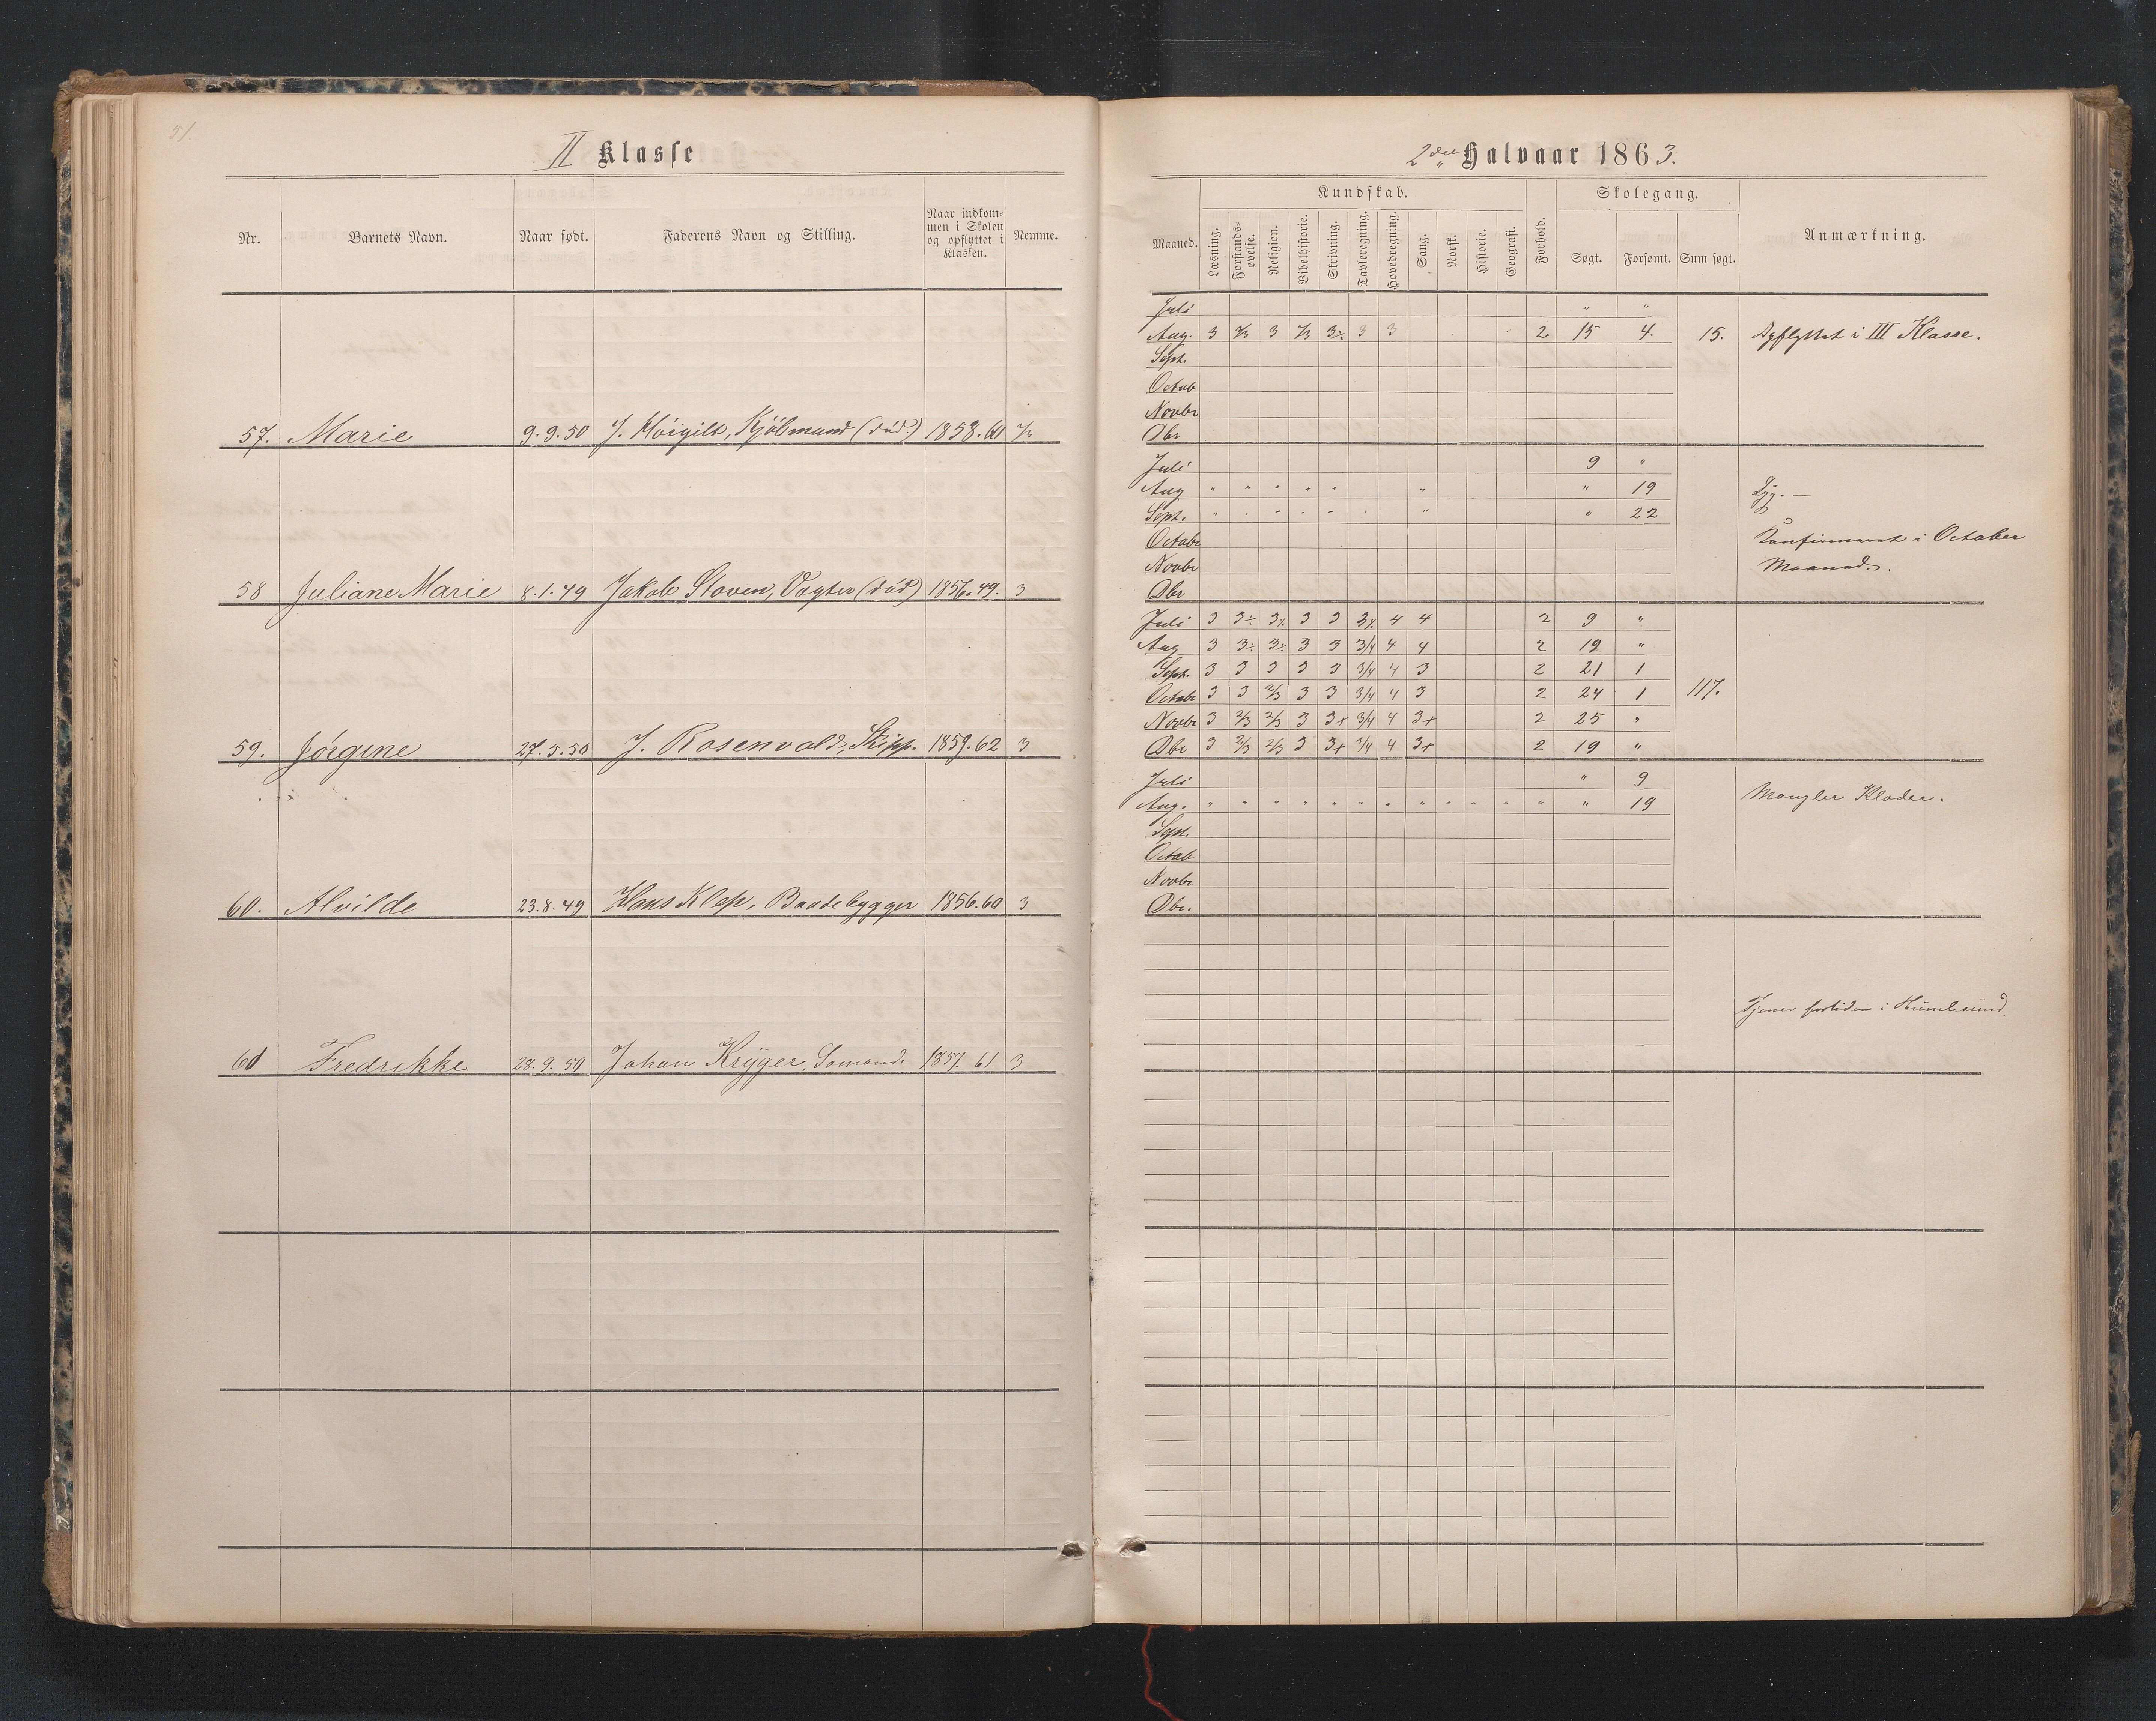 51.
II Klasse
Nr. Barnets Navn. Naar født. Faderens Navn og Stilling. Naar indkom- men i Skolen og opflyttet i Klassen. Nemme.
57. Marie 9.9.50 J. Höigilt, Kjöbmand (död) 1858.60
58 Juliane Marie 8.1.49 Jakob Stoven, Vogter (död) 1856.49. 3
59. Jörgine 27.5.50 J. Rosenvold, Skipp. 1859.62 3
60. Alvilde 23.8.49 Hans Klep, Baadebygger 1856.60 3
61 Fredrikke 28.9.50 Johan Krÿger, Sömand. 1857.61. 3
2det Halvaar 1863.
Maaned. Kundskab. Forhold. Skolegang. Anmærkning.
Læsning. Forstands- øvelse. Religion. Bibelhistorie. Skrivning. Tavleregning. Hovedregning. Sang. Norsk. Historie. Geografi. Søgt. Forsømt. Sum søgt.
Juli " "
Aug. 3 3 3÷ 3 3 2 15 4. 15. Opflyttet i III Klasse.
Sept.
Octob
Novbr
Dbr
Juli 9 "
Aug " " " " " " " 19 Syg. —
Sept. " " " " " " " " 22
Octobr Konfirmeret i October
Novbr Maaned.
Dbr
Juli 3 3÷ 3÷ 3 3 4 4 2 9 "
Aug 3 3÷ 3÷ 3 3 3/4 4 4 2 19 "
Sept. 3 3 3 3 3 3/4 4 3 2 21 1
Octobr 3 3 2/3 3 3 3/4 4 3 2 24 1 117.
Novbr 3 2/3 2/3 3 3+ 3/4 4 3+ 2 25 "
Dbr 3 2/3 2/3 3 3+ 3/4 4 3+ 2 19 "
Juli " 9
Aug. " " " " " " " " " " " " " 19 Mangler Klæder.
Sept.
Octob
Novbr
Dbr.
Tjener fortiden i